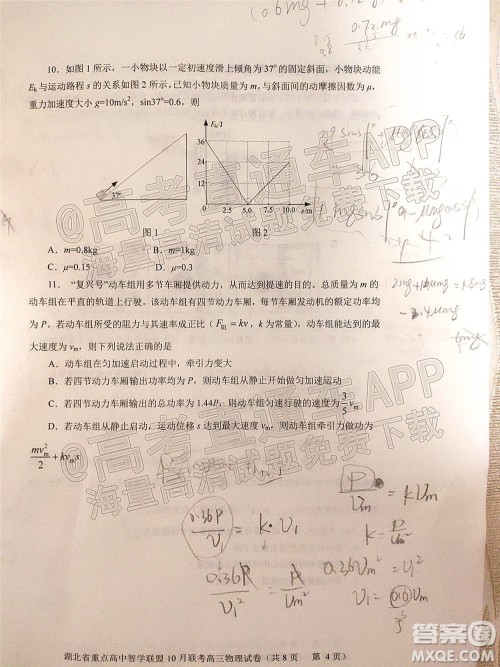 10. 如图 1 所示，一小物块以一定初速度滑上倾角为 37° 的固定斜面，小物块动能
Ek 与运动路程 s 的关系如图 2 所示。已知小物块质量为 m，与斜面间的动摩擦因数为 μ，
重力加速度大小 g=10m/s²，sin37°=0.6，则
37°
Ek/J
36
24
12
0 2.5 5.0 7.5 10.0 s/m
图 1
图 2
A．m=0.8kg
B．m=1kg
C．μ=0.15
D．μ=0.3
11. “复兴号”动车组用多节车厢提供动力，从而达到提速的目的。总质量为 m 的
动车组在平直的轨道上行驶。该动车组有四节动力车厢，每节车厢发动机的额定功率均
为 P。若动车组所受的阻力与其速率成正比（F阻 = kv，k 为常量），动车组能达到的最
大速度为 vm，则下列说法正确的是
A．动车组在匀加速启动过程中，牵引力变大
B．若四节动力车厢输出功率均为 P，则动车组从静止开始做匀加速运动
C．若四节动力车厢输出的总功率为 1.44P，则动车组匀速行驶的速度为 3/5 vm
D．若动车组从静止启动，运动位移 s 达到最大速度 vm，则动车组牵引力做功为
mvm²/2 + kvms
0.36P/v1 = k·v1
P/vm = kvm
k = P/vm²
0.36P/v1² = P/vm²
0.36vm² = v1²
@高考直通车APP
海量高清试题免费下载
@高考直通车APP
海量高清试题免费下载
湖北省重点高中智学联盟 10 月联考高三物理试卷（共 8 页 第 4 页）